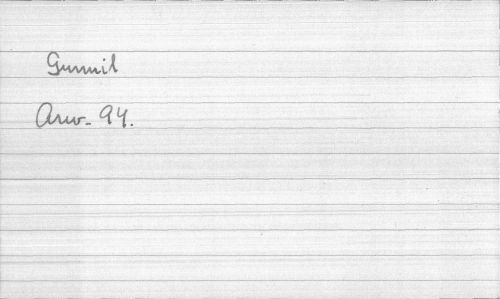 Gunnil
Arw. 94.